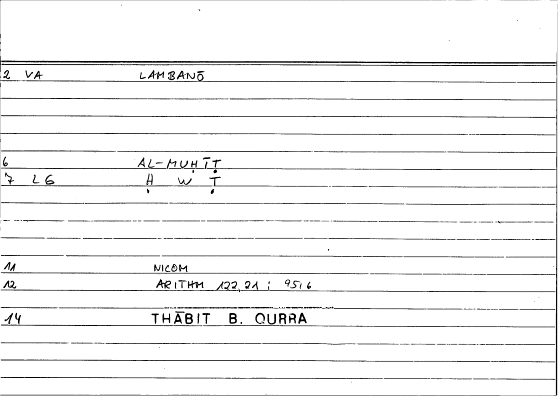 2 VA LAMBANŌ
6 AL-MUḤĪṬ
7 LG Ḥ W Ṭ
11 NICOM
12 ARITHM 122,21 ; 95,6
14 THĀBIT B. QURRA